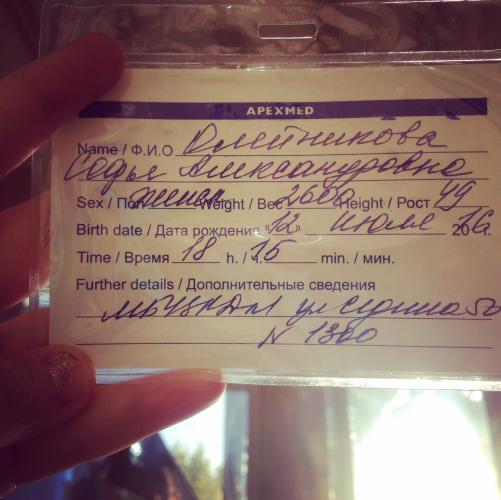 APEXMED
Name / Ф.И.О Олейникова
Софья Александровна
Sex / Пол женск Weight / Вес 2600 Height / Рост 49
Birth date / Дата рождения «12 июля 2016г.
Time / Время 18 h. / ч. 15 min. / мин.
Further details / Дополнительные сведения
ул
N 1300